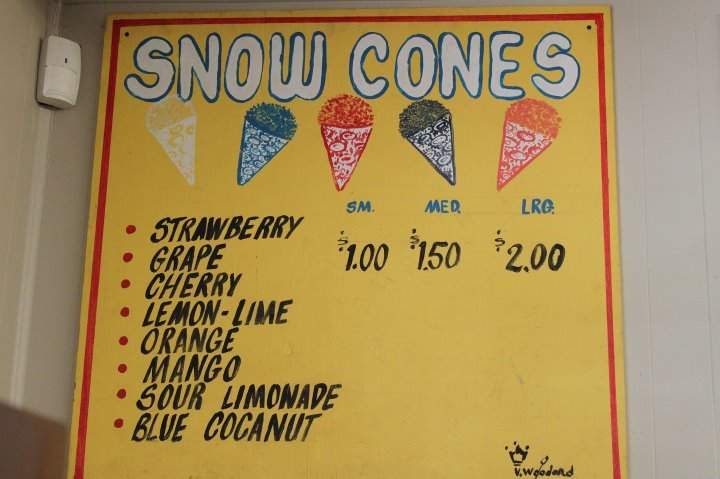 SNOW CONES
SM. MED. LRG.
$1.00 $1.50 $2.00
• STRAWBERRY
• GRAPE
• CHERRY
• LEMON-LIME
• ORANGE
• MANGO
• SOUR LIMONADE
• BLUE COCANUT
V. Woodard